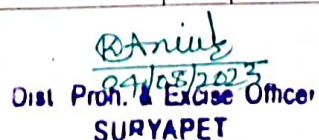 04/08/2023
Dist Proh. & Excise Officer
SURYAPET